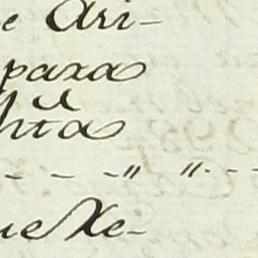 e Ari-
paxa
hta
- - - " " - -
ue Xe-